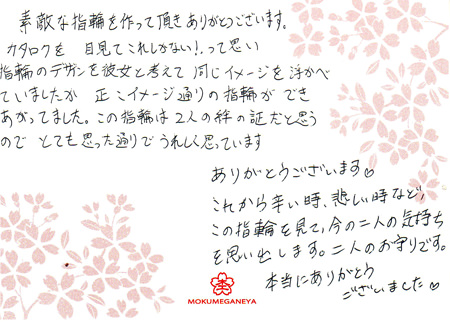 素敵な指輪を作って頂きありがとうございます。
カタログを 目見てこれしかない!って思い
指輪のデザンを彼女と考えて 同じイメージを浮かべ
ていましたが 正にイメージ通りの指輪ができ
あがってました。この指輪は2人の絆の証だと思う
ので とても思った通りでうれしく思っています
ありがとうございます♡
これから辛い時、悲しい時など、
この指輪を見て、今の二人の気持ち
を思い出します。二人のお守りです。
本当にありがとう
ございました♡
MOKUMEGANEYA